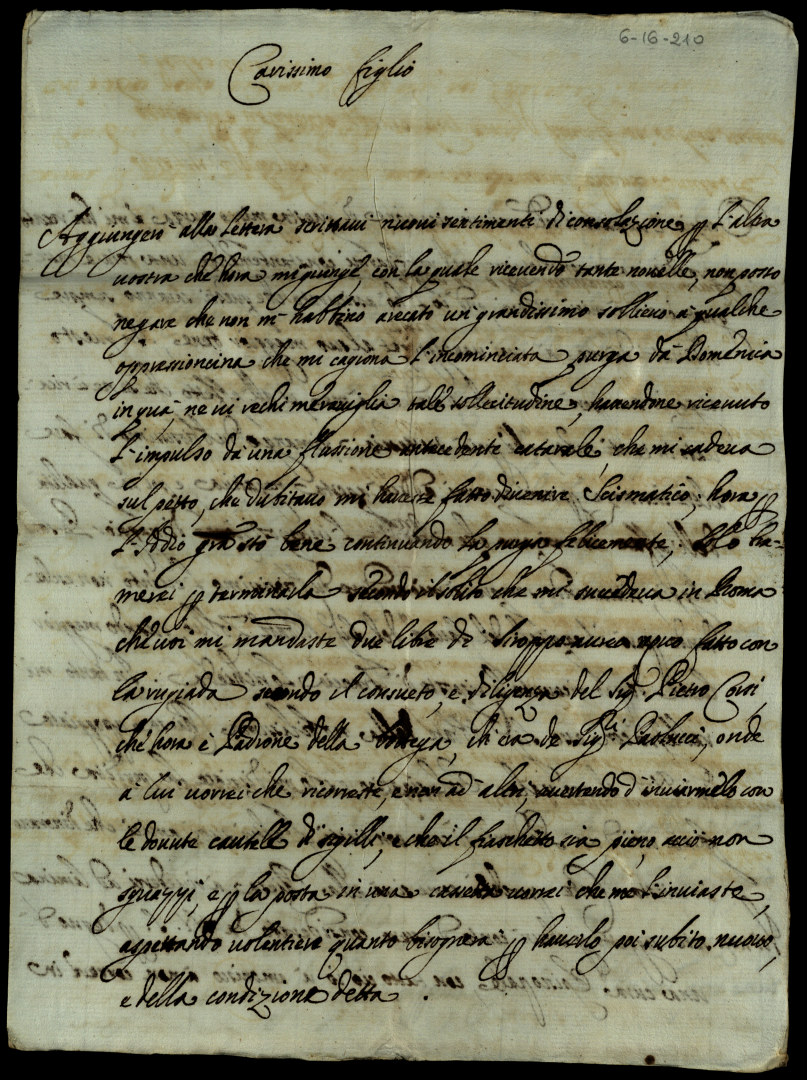 6-16-210
Carissimo figlio
Aggiungerò alla lettera scrittavi nuovi sentimenti di consolazione p l'altra
vostra che hora mi giunge, con la quale ricevendo tante novelle, non posso
negare che non m'habbino arecato un grandissimo sollievo à qualche
oppressioncina che mi cagiona l'incominciata purga dà Domenica
in quà, ne vi rechi meraviglia tale sollecitudine, havendone ricevuto
l'impulso da una flussione antecedente catarale, che mi cadeva
sul petto, che dubitavo mi havesse fatto divenire Scismatico; hora p
l'Iddio grã stò bene continuando la purga felicemente,
merei p terminarla secondo il solito che mi succedeva in Roma
che voi mi mandaste due libre di Siroppo aureo fatto con
la rugiada secondo il consueto, e diligenza del Sig.r Pietro Corsi,
che hora è Padrone della bottega, ch'era de Sig.ri Paolucci, onde
à lui vorrei che ricorreste, e non ad altri, avertendo d'inviarmelo con
le dovute cautelle di sigilli, e che il fiaschetto sia pieno, acciò non
sguazzi, e p la posta in una cassetta vorrei che me l'inviaste,
aspettando volentieri quanto bisognerà p haverlo poi subito nuovo,
e della condizione detta.